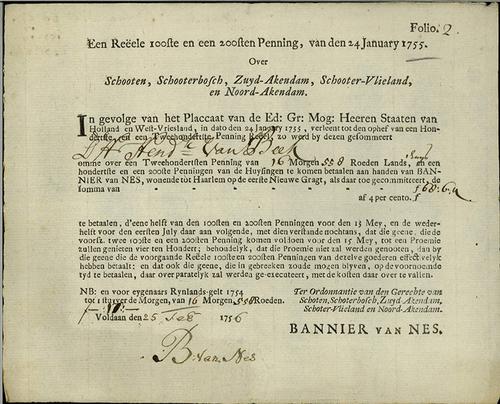 Folio. 2.
Een Reëele 100ste en een 200sten Penning, van den 24 January 1755.
Over
Schooten, Schooterbosch, Zuyd-Akendam, Schooter-Vlieland,
en Noord-Akendam.
In gevolge van het Placcaat van de Ed: Gr: Mog: Heeren Staaten van
Holland en West-Vriesland, in dato den 24 January 1755, verleent tot den ophef van een Hon-
dertste, en een Twehondertste Penning Reëel, zo word by dezen gesommeert
Hend: van Beek
omme over een Twehondertsten Penning van 16 Morgen 558 Roeden Lands, en een
hondertste en een 200ste Penningen van de Huysingen te komen betaalen aan handen van BAN-
NIER van NES, wonende tot Haarlem op de eerste Nieuwe Gragt, als daar toe gecommitteert, de
somma van f 68:6:
af 4 per cento. f
te betaalen, d'eene helft van den 100sten en 200sten Penningen voor den 13 Mey, en de weder-
helft voor den eersten July daar aan volgende, met dien verstande nochtans, dat die geene, die de
voorsz. twee 100ste en een 200sten Penning komen voldoen voor den 15 Mey, tot een Proemie
zullen genieten vier ten Hondert; behoudelyk, dat die Proemie niet zal werden genooten, dan by
die geene die de voorgaande Reëele 100sten en 200sten Penningen van dezelve goederen effectivelyk
hebben betaalt; en dat ook die geene, die in gebreeken zoude mogen blyven, op de voornoemde
tyd te betaalen, daar over paratelyk zal werden ge-executeert, met de kosten daar over te vallen.
NB: en voor eygenaars Rynlands-gelt 1754
tot 1 stuyver de Morgen, van 16 Morgen 558 Roeden.
Voldaan den 25 Feb 1756
Ter Ordonnantie van den Gerechte van
Schoten, Schoterbosch, Zuyd-Akendam,
Schoter-Vlieland en Noord-Akendam.
BANNIER van NES.
B. van Nes